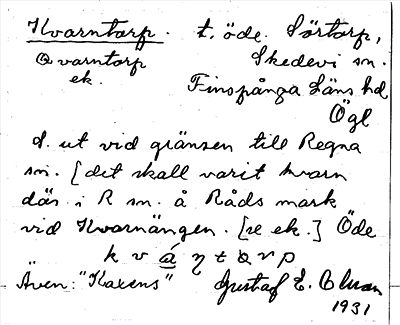 Kvarntorp. t. öde. Sörtorp,
Qvarntorp Skedevi sn.
ek. Finspånga Läns hd
Ögl
d. ut vid gränsen till Regna
sn. [det skall varit kvarn
där i R sn. å Råds mark
vid Kvarnängen. [se ek.] Öde
k v á
Även: "Karens" Gustaf E.
1931